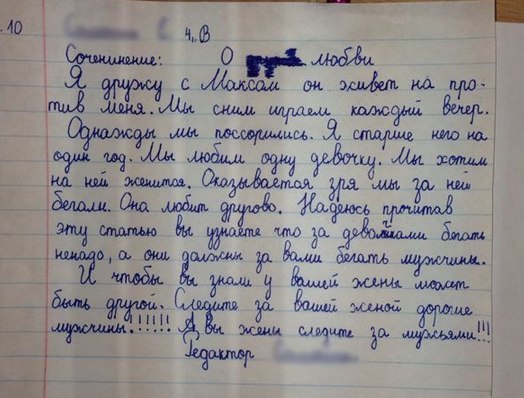 .10
4„В
Сочнинение: О любви
Я дружу с Максам он живет на про-
тив меня. Мы сним играем каждый вечер.
Однажды мы поссорились. Я старше него на
один год. Мы любим одну девочку. Мы хотим
на ней женится. Оказывается зря мы за ней
бегали. Она любит другово. Надеюсь прочитав
эту статью вы узнаете что за девочками бегать
ненадо, а они должны за вами бегать мужчины.
И чтобы вы знали у вашей жены может
быть другой. Следите за вашей женой дорогие
мужчины!!!!!! А вы жены следите за мужьями!!!
Редактор